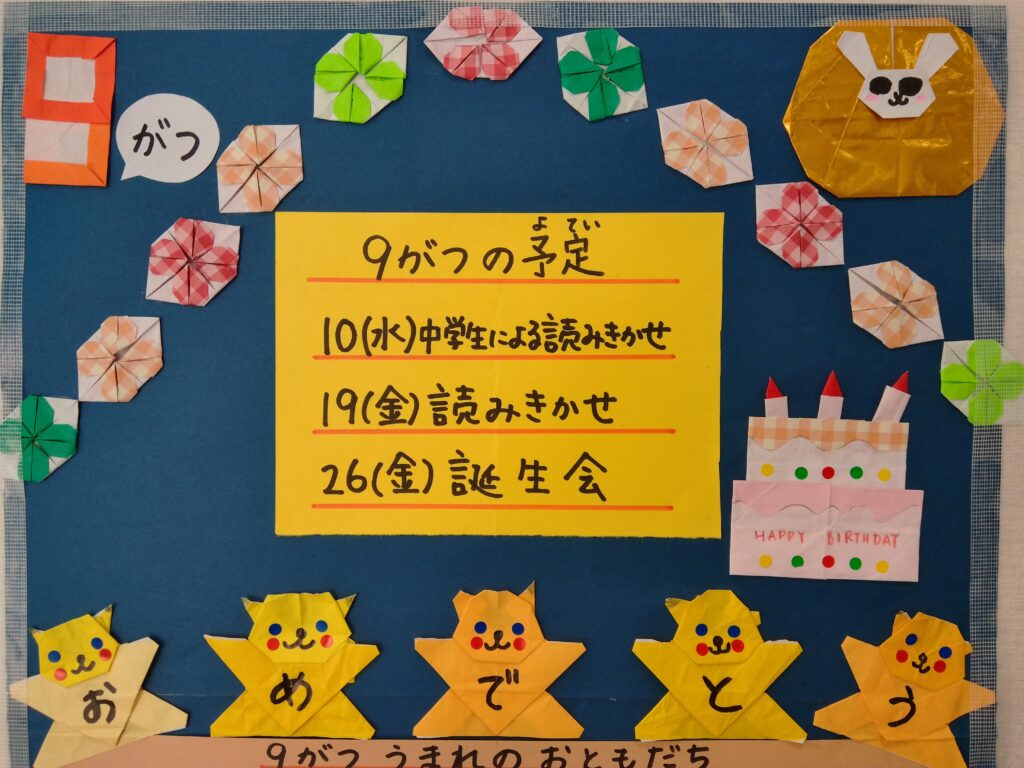 9がつ
9がつの予定
よてい
10(水)中学生による読みきかせ
19(金)読みきかせ
26(金)誕生会
HAPPY BIRTHDAY
おめでとう
9がつうまれのおともだち